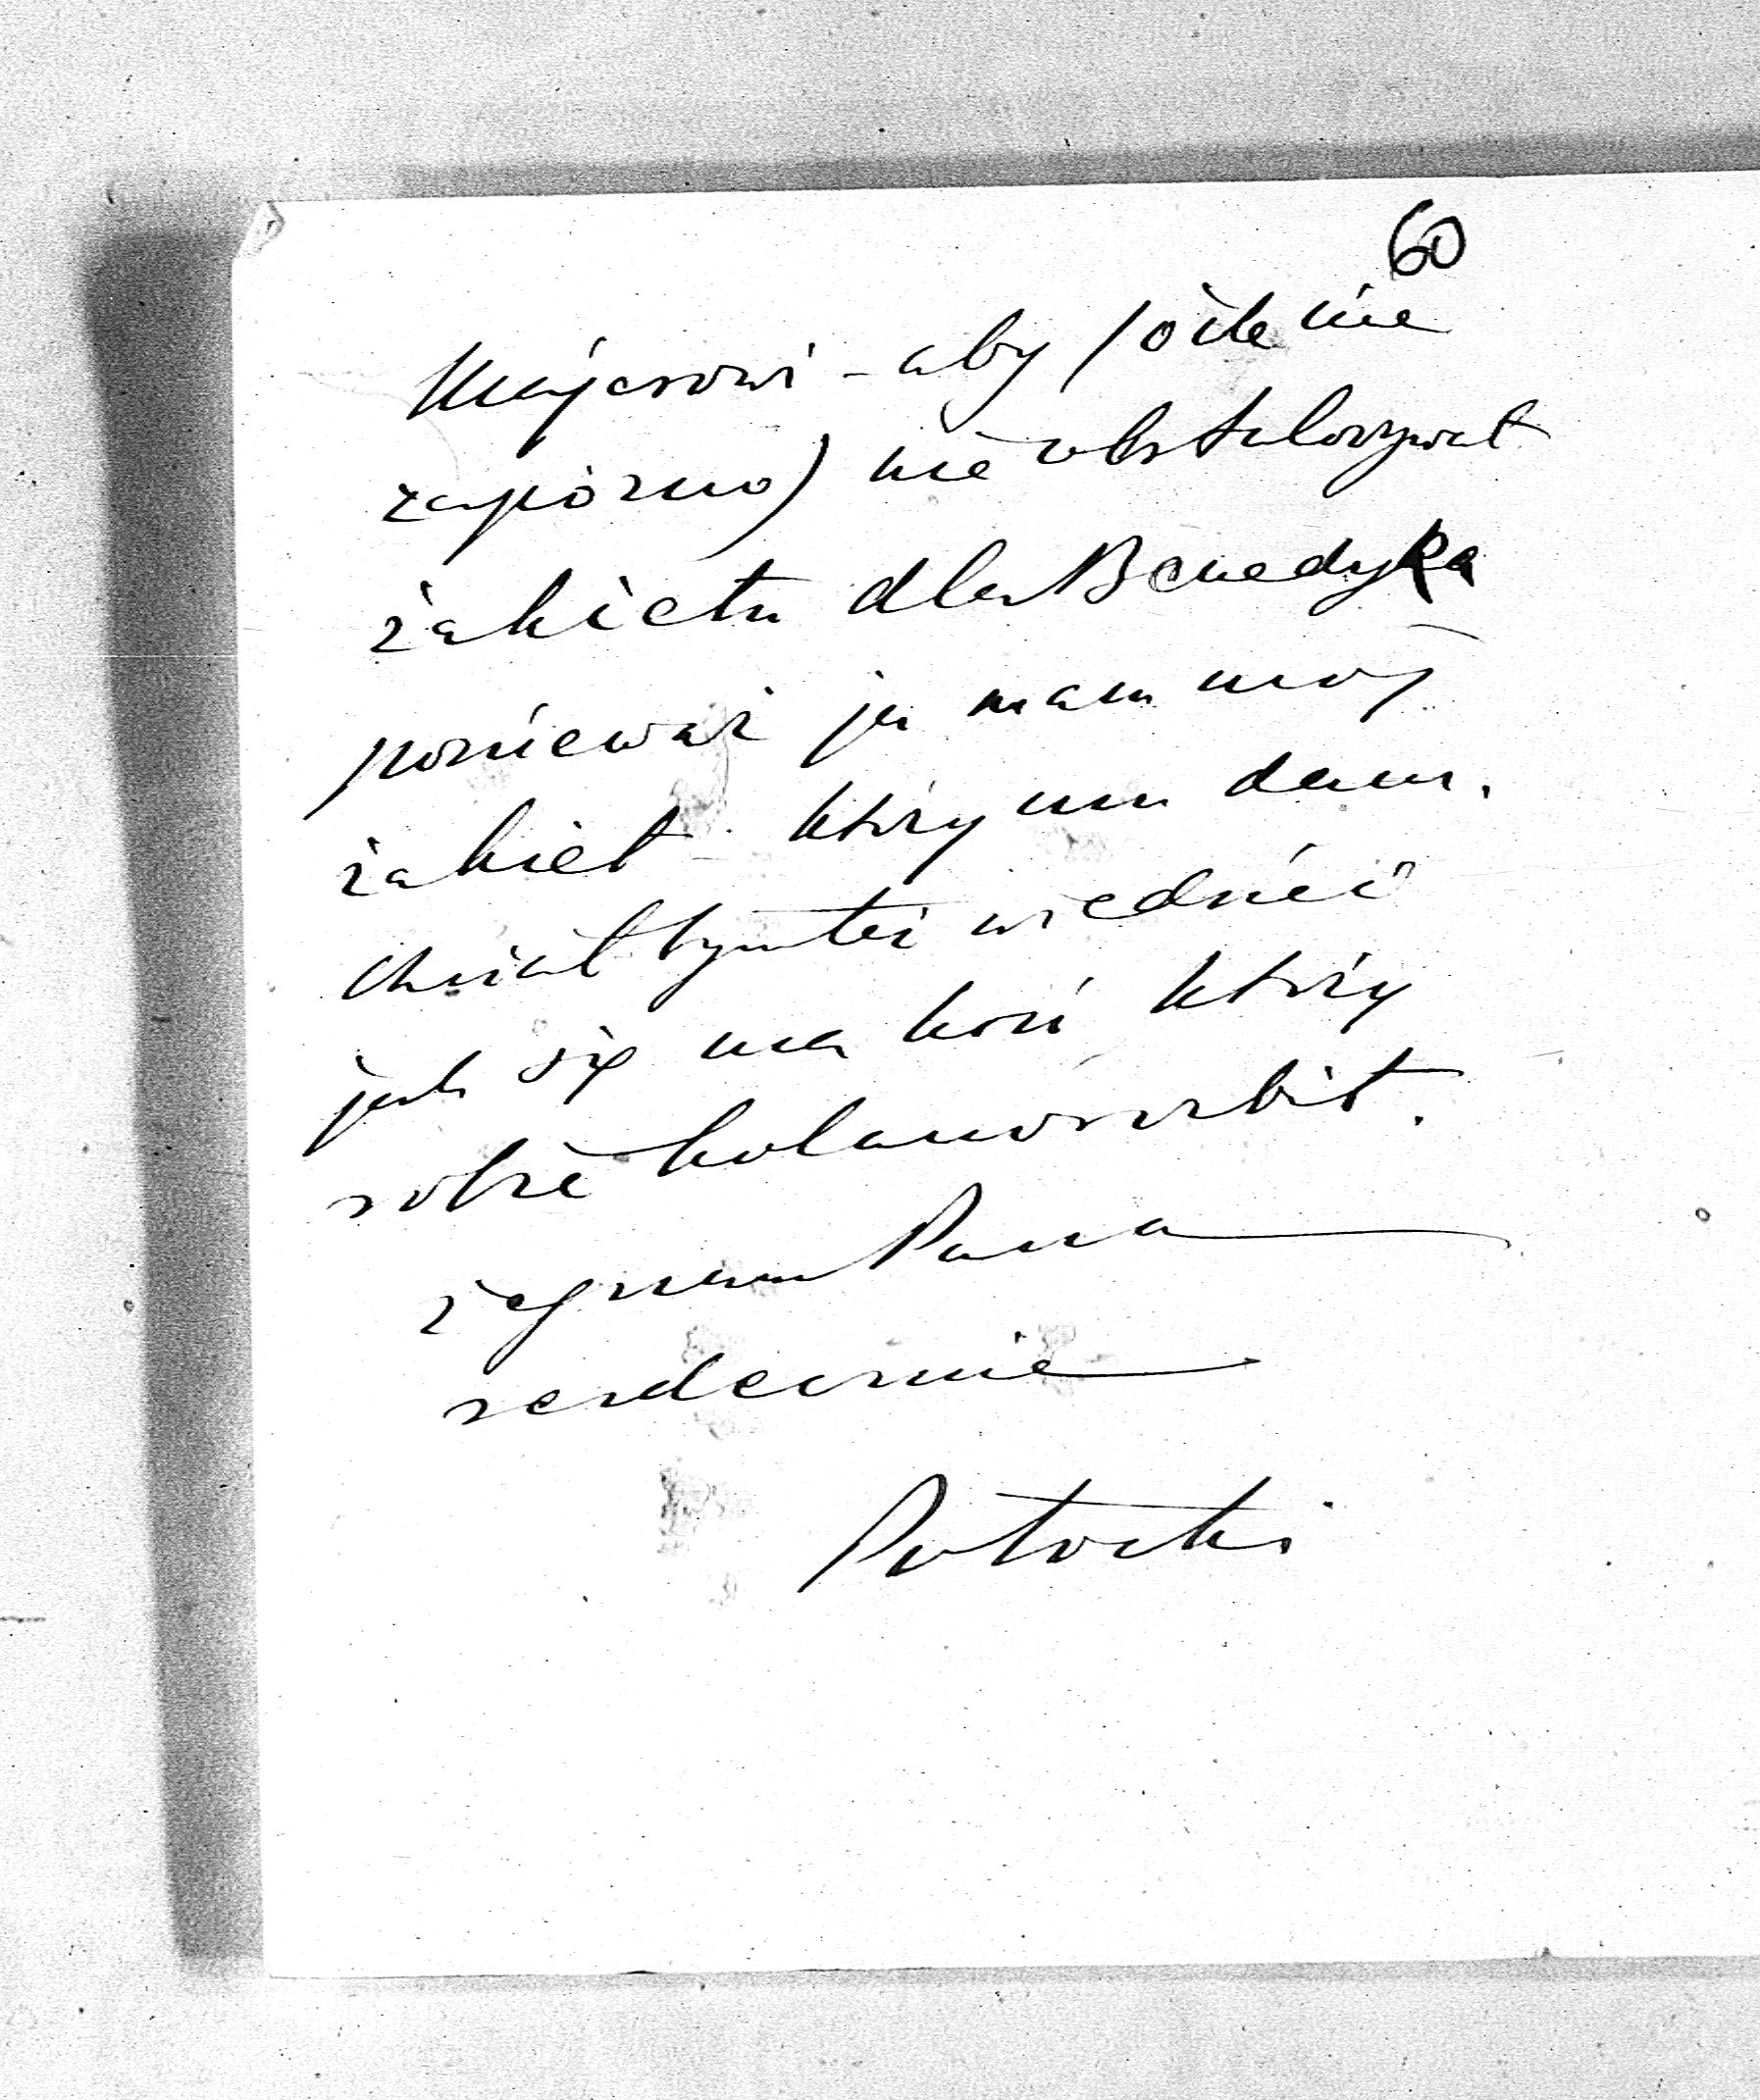 60
Majerowi - aby (o ile nie
zapóźno) nie obstalowywał
żakietu dla Benedyka
ponieważ ja mam mój
żakiet który mu dam.
Chciałbym też wiedzieć
jak się ma koń który
sobie kolano rozbił.
Żegnam Pana
serdecznie
Potocki